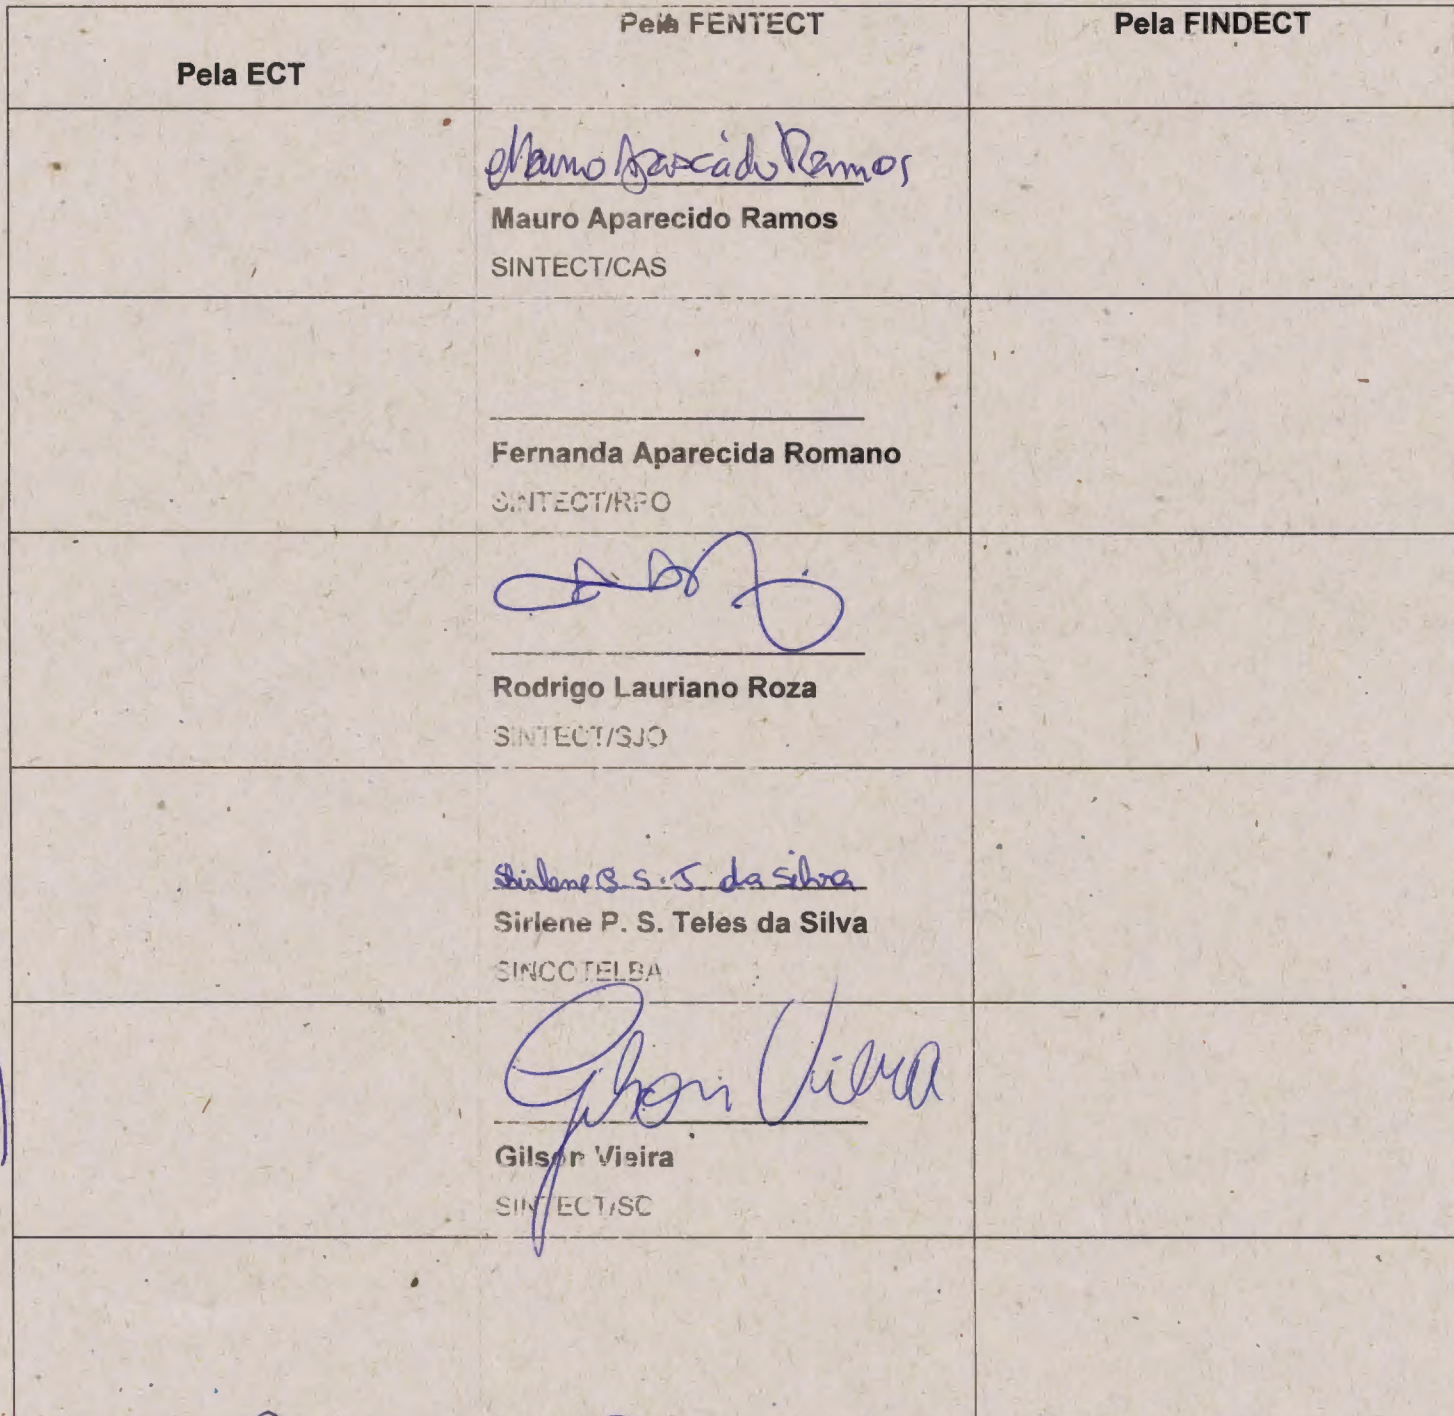 Pela ECT
Pela FENTECT
Pela FINDECT
Mauro Aparecido Ramos
Mauro Aparecido Ramos
SINTECT/CAS
Fernanda Aparecida Romano
SINTECT/RPO
Rodrigo Lauriano Roza
SINTECT/SJO
Sirlene P. S. T. da Silva
Sirlene P. S. Teles da Silva
SINCOTELBA
Gilson Vieira
Gilson Vieira
SINTECT/SC